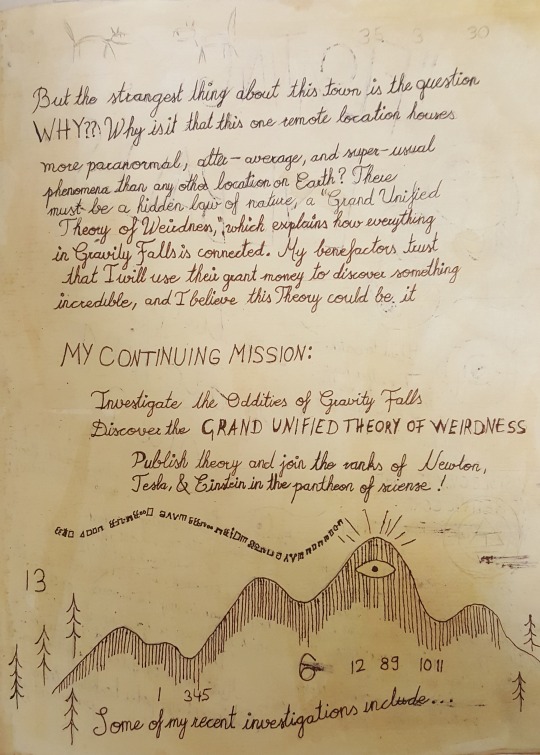 35 3 30
But the strangest thing about this town is the question
WHY?? Why is it that this one remote location houses
more paranormal, atter-average, and super-usual
phenomena than any other location on Earth? There
must be a hidden law of nature, a "Grand Unified
Theory of Weirdness," which explains how everything
in Gravity Falls is connected. My benefactors trust
that I will use their grant money to discover something
incredible, and I believe this Theory could be it
MY CONTINUING MISSION:
Investigate the Oddities of Gravity Falls
Discover the GRAND UNIFIED THEORY OF WEIRDNESS
Publish theory and join the ranks of Newton,
Tesla, & Einstein in the pantheon of sciense!
13
6 12 89 1011
1 345
Some of my recent investigations include...